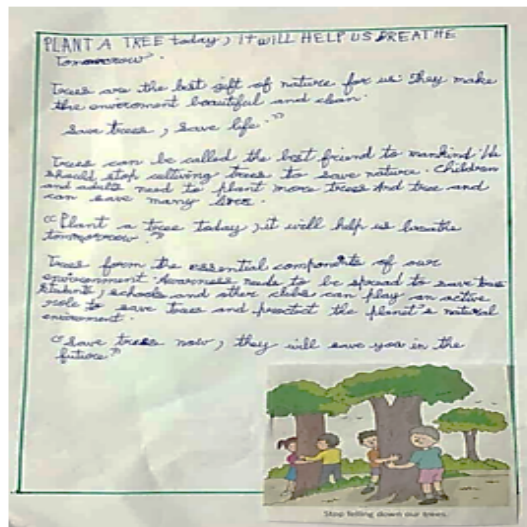 PLANT A TREE today, IT WILL HELP US BREATHE
Tomorrow.
Trees are the best gift of nature for us. They make
the enviroment beautiful and clean.
Save trees, save life."
Trees can be called the best friend to mankind. We
should stop cutting trees to save nature. Children
and adults need to plant more trees And tree and
can save many lives.
"Plant a tree today, it will help us breathe
tommorrow."
Trees form the essential components of our
environment. Awarness needs to be spread to save tree
Students, schools and other clubs can play an active
role to save trees and proctect the planet's natural
enviroment.
"Save trees now, they will save you in the
future"
Stop felling down our trees.